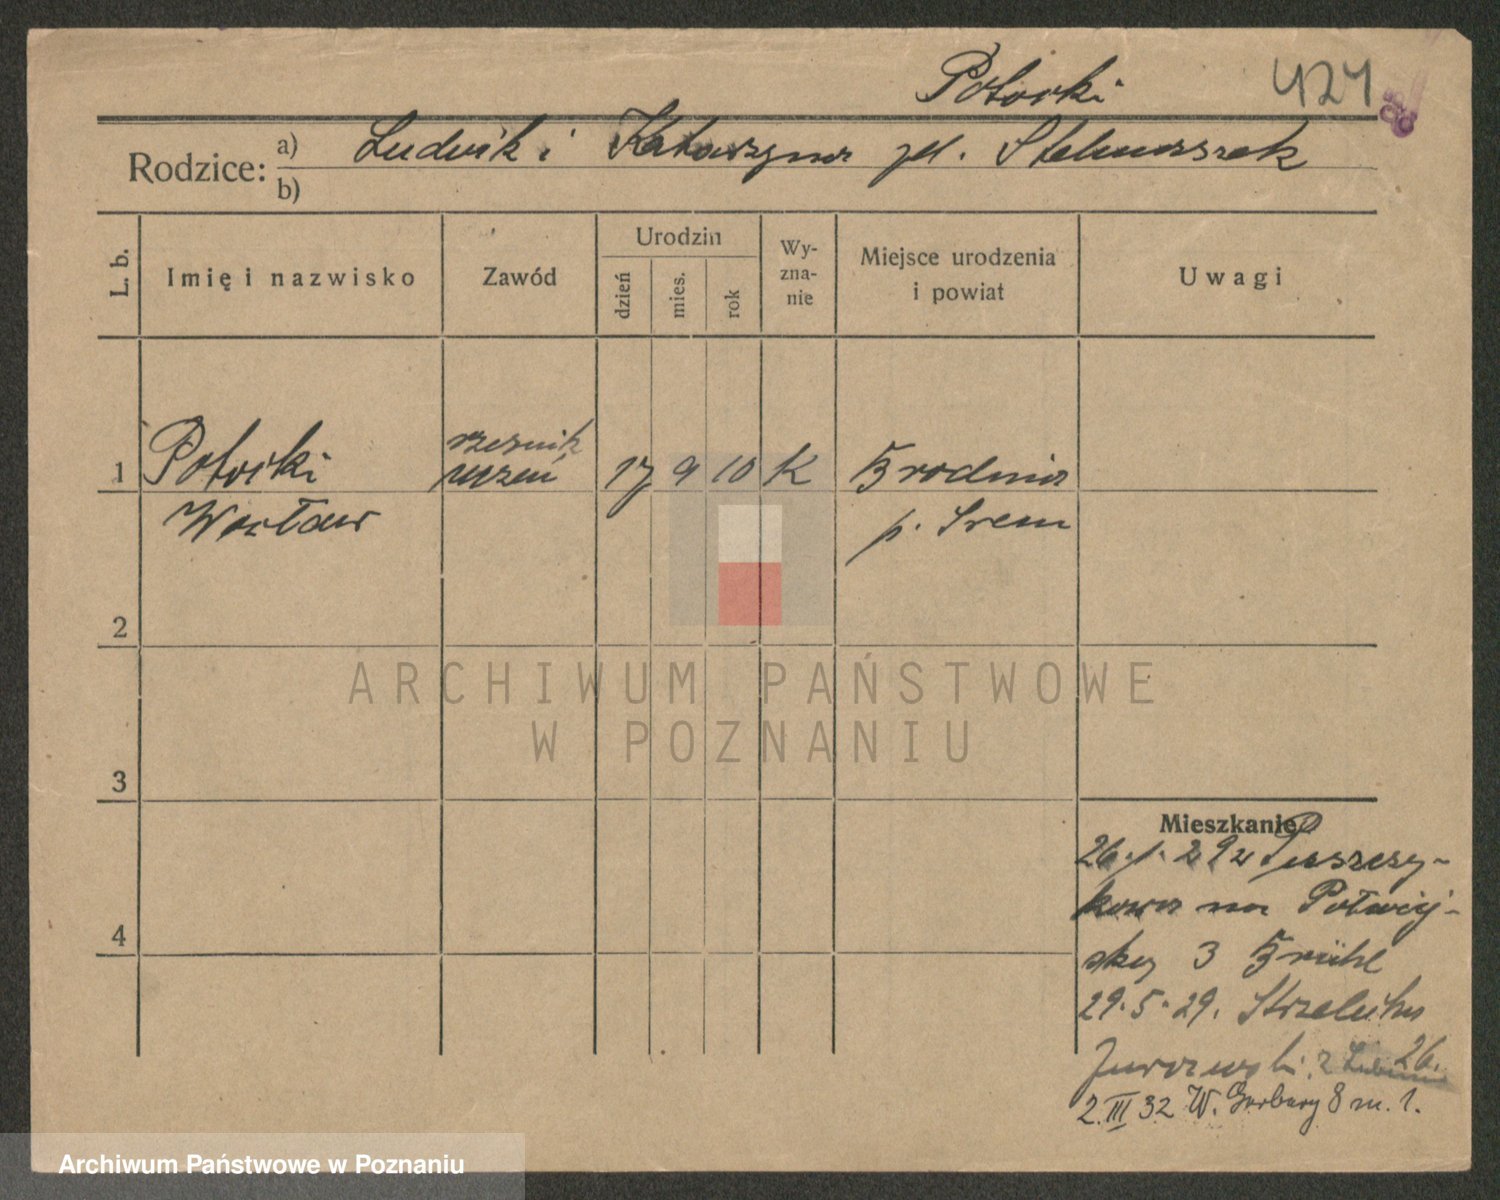 Potocki 424
Rodzice: a) Ludwik i Katarzyna zd. Stelmaszak
b)
L. b. Imię i nazwisko Zawód Urodzin dzień mies. rok Wyznanie Miejsce urodzenia i powiat Uwagi
1 Potocki rzeźnik uczeń 17 9 10 K Brodnica
Wacław p. Śrem
2
3
4
Mieszkanie
26.1.29 z Puszczy-
kowa na Półwiej-
ską 3 Brühl
29.5.29. Strzelecka 26.
Jurszewski
2.III 32 W. Garbary 8 m. 1.
ARCHIWUM PAŃSTWOWE
W POZNANIU
Archiwum Państwowe w Poznaniu